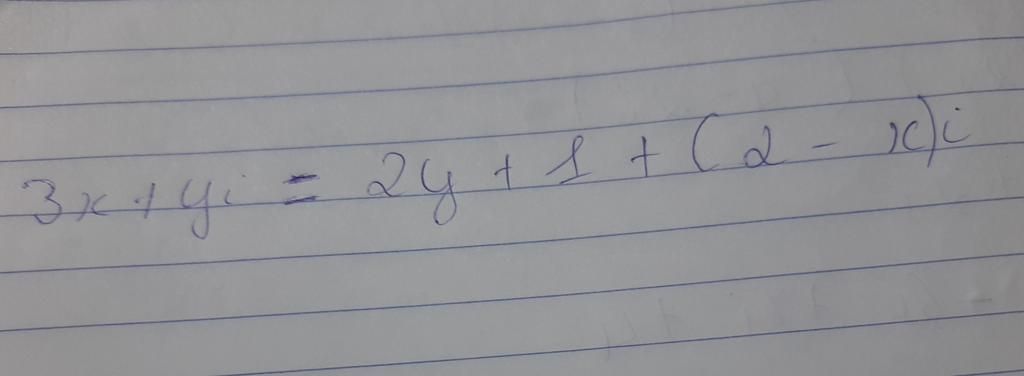 3x + yi = 2y + 1 + (2 - x)i